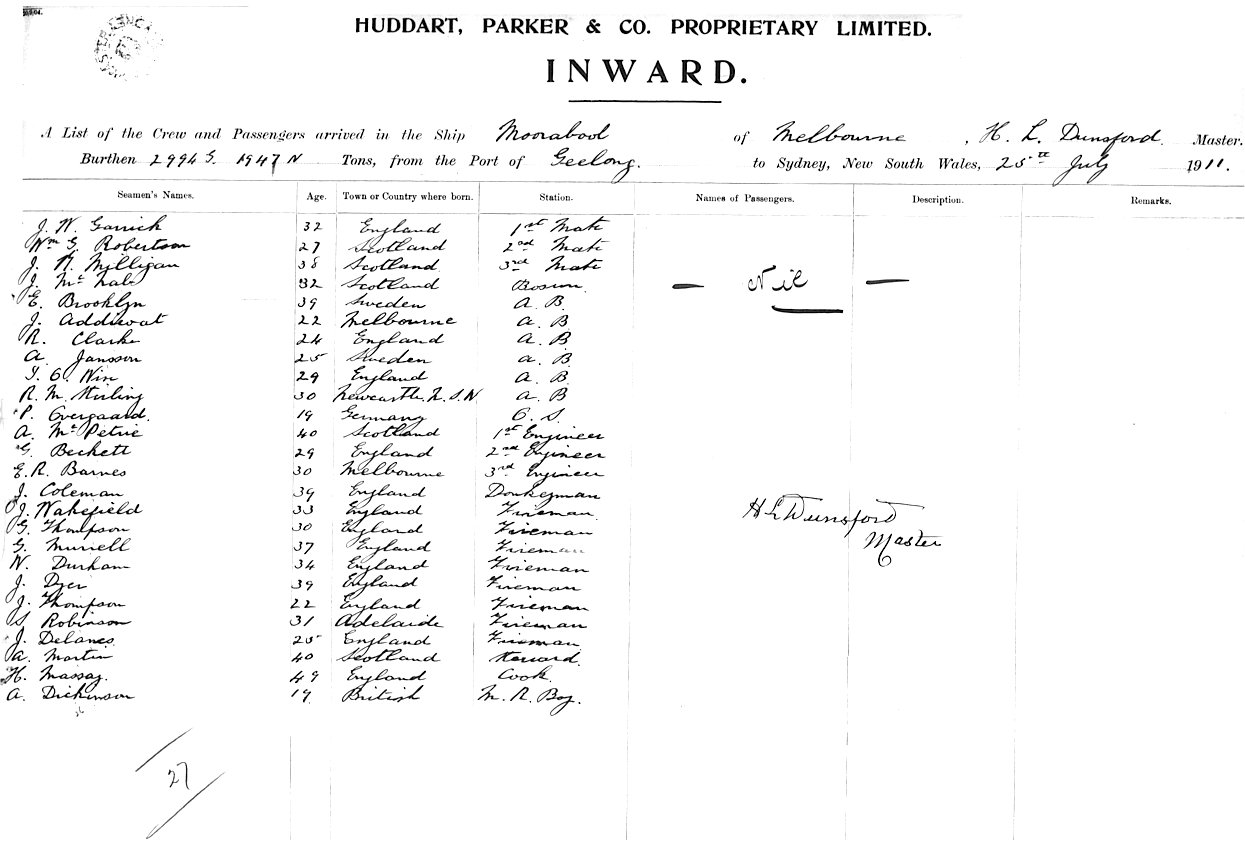 HUDDART, PARKER & CO. PROPRIETARY LIMITED.
INWARD.
A List of the Crew and Passengers arrived in the Ship Moorabool of Melbourne, H. L. Dunsford Master.
Burthen 2994 G. 1947 N Tons, from the Port of Geelong. to Sydney, New South Wales, 25th July 1911.
Seamen's Names. Age. Town or Country where born. Station. Names of Passengers. Description. Remarks.
J. W. Garrick 32 England 1st Mate
Wm G. Robertson 27 Scotland 2nd Mate
J. H. Milligan 38 Scotland 3rd Mate
J. McNab 32 Scotland Bosun. — Nil —
E. Brooklyn 39 Sweden A. B.
J. 22 Melbourne A. B
R. Clarke 24 England A. B
A. Jansson 25 Sweden A. B
29 England A. B
R. M. Stirling 30 Newcastle. N. S. W A. B
P. Overgaard. 19 Germany O. S.
A. McPetrie 40 Scotland 1st Engineer
G. Beckett 29 England 2nd Engineer
E. R. Barnes 30 Melbourne 3rd Engineer
J. Coleman 39 England Donkeyman
J. Wakefield 33 England Fireman. H L Dunsford
G. Thompson 30 England Fireman
Master
G. Murrell 37 England Fireman
W. Durham 34 England Fireman
J. Dyer 39 England Fireman
J. Thompson 22 England Fireman
S. Robinson 31 Adelaide Fireman
J. Delaney 25 England Fireman
A. Martin 40 Scotland Steward.
H. Massay. 49 England Cook.
A. Dickinson 19. British M. R. Boy.
27